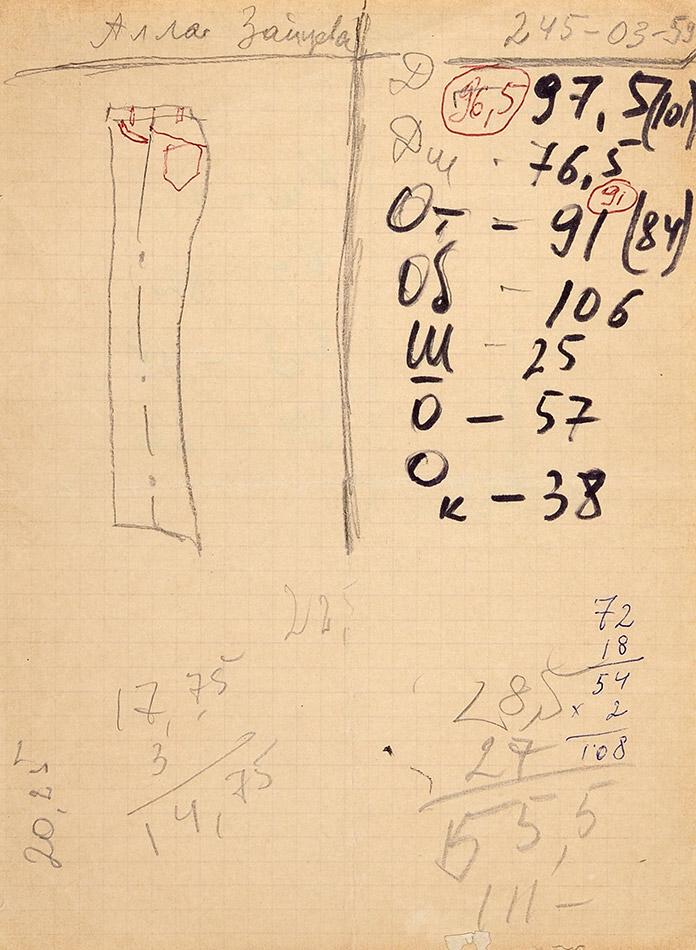 Алла Зайцева 245-03-59
Д 96,5 97,5 (101)
Дш - 76,5
От - 91 91 (84)
Об - 106
Ш - 25
О - 57
Ок - 38
72
18
54
x 2
108
17,75
3
14,75
20,25
28,5
27
55,5
111 -